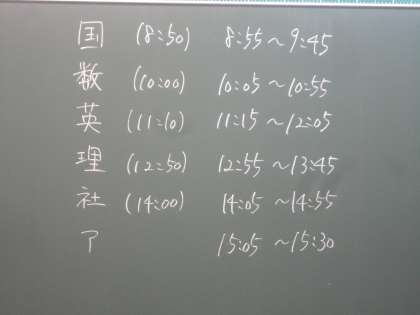 国 (8:50) 8:55～9:45
数 (10:00) 10:05～10:55
英 (11:10) 11:15～12:05
理 (12:50) 12:55～13:45
社 (14:00) 14:05～14:55
ア 15:05～15:30